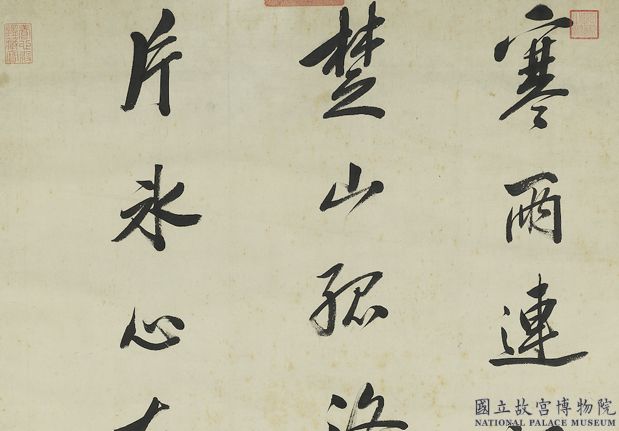 寒雨連
楚山孤
片冰心
國立故宮博物院
NATIONAL PALACE MUSEUM